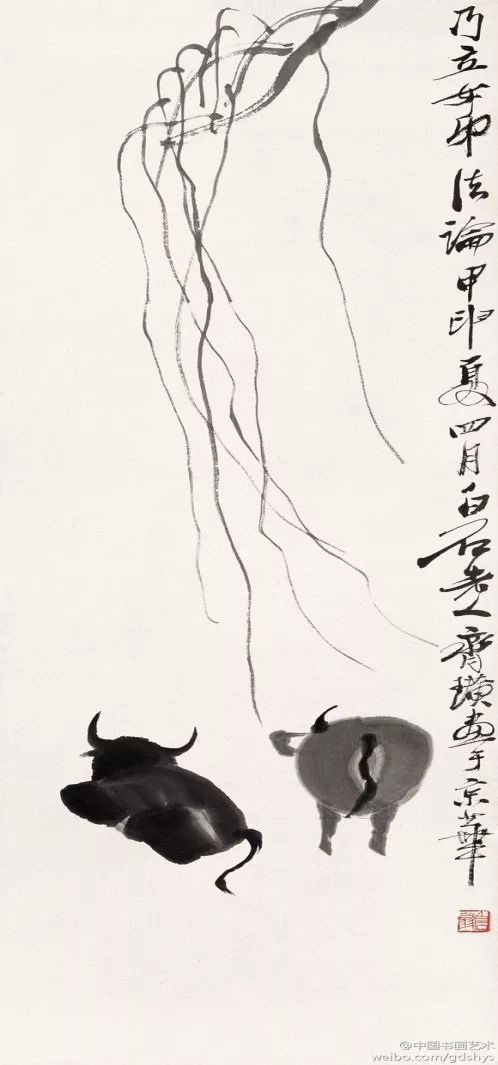 乃立女弟法論甲申夏四月白石老人齊璜畫于京華
@中国书画艺术
weibo.com/gdshys